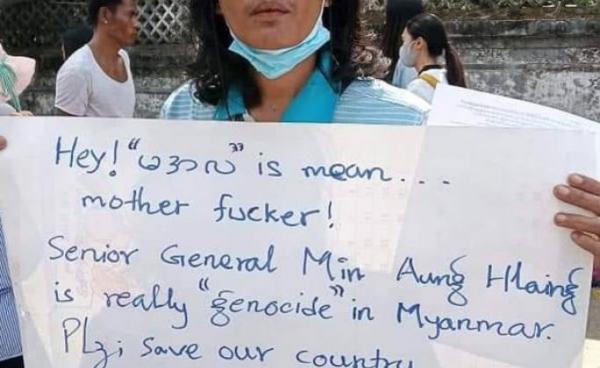 Hey! "မအာလ" is mean...
mother fucker!
Senior General Min Aung Hlaing
is really "genocide" in Myanmar.
Plz; save our country